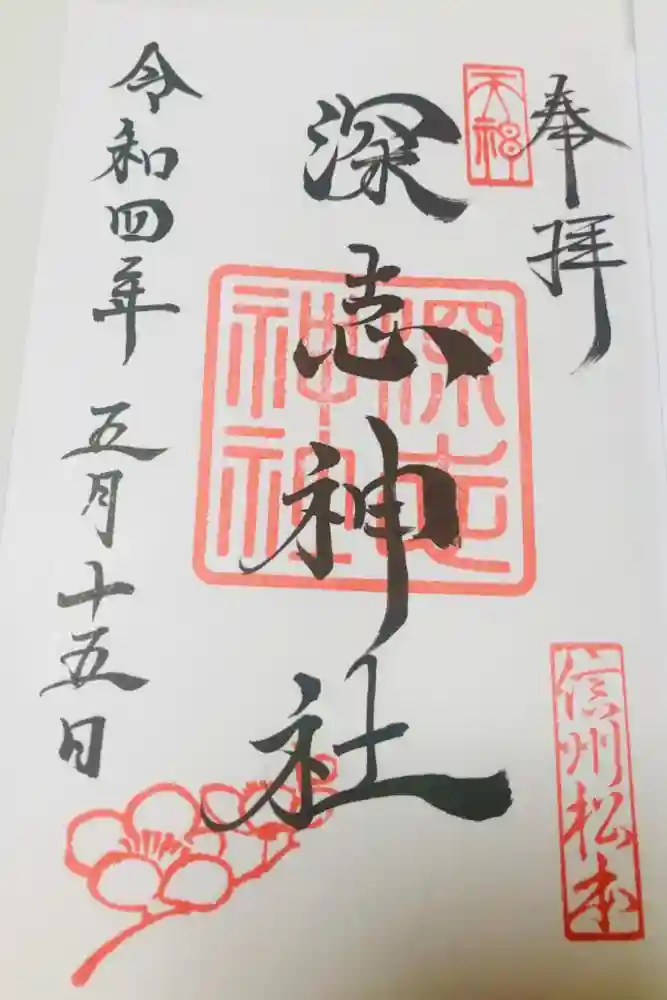 奉拝
天神
深志神社
深志神社
信州松本
令和四年五月十五日